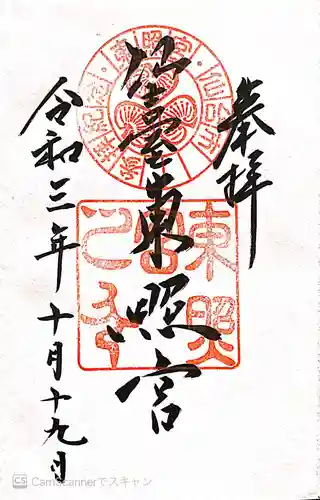 奉拝
仙臺東照宮
令和三年十月十九日
東照
宮
之印
CS CamScannerでスキャン